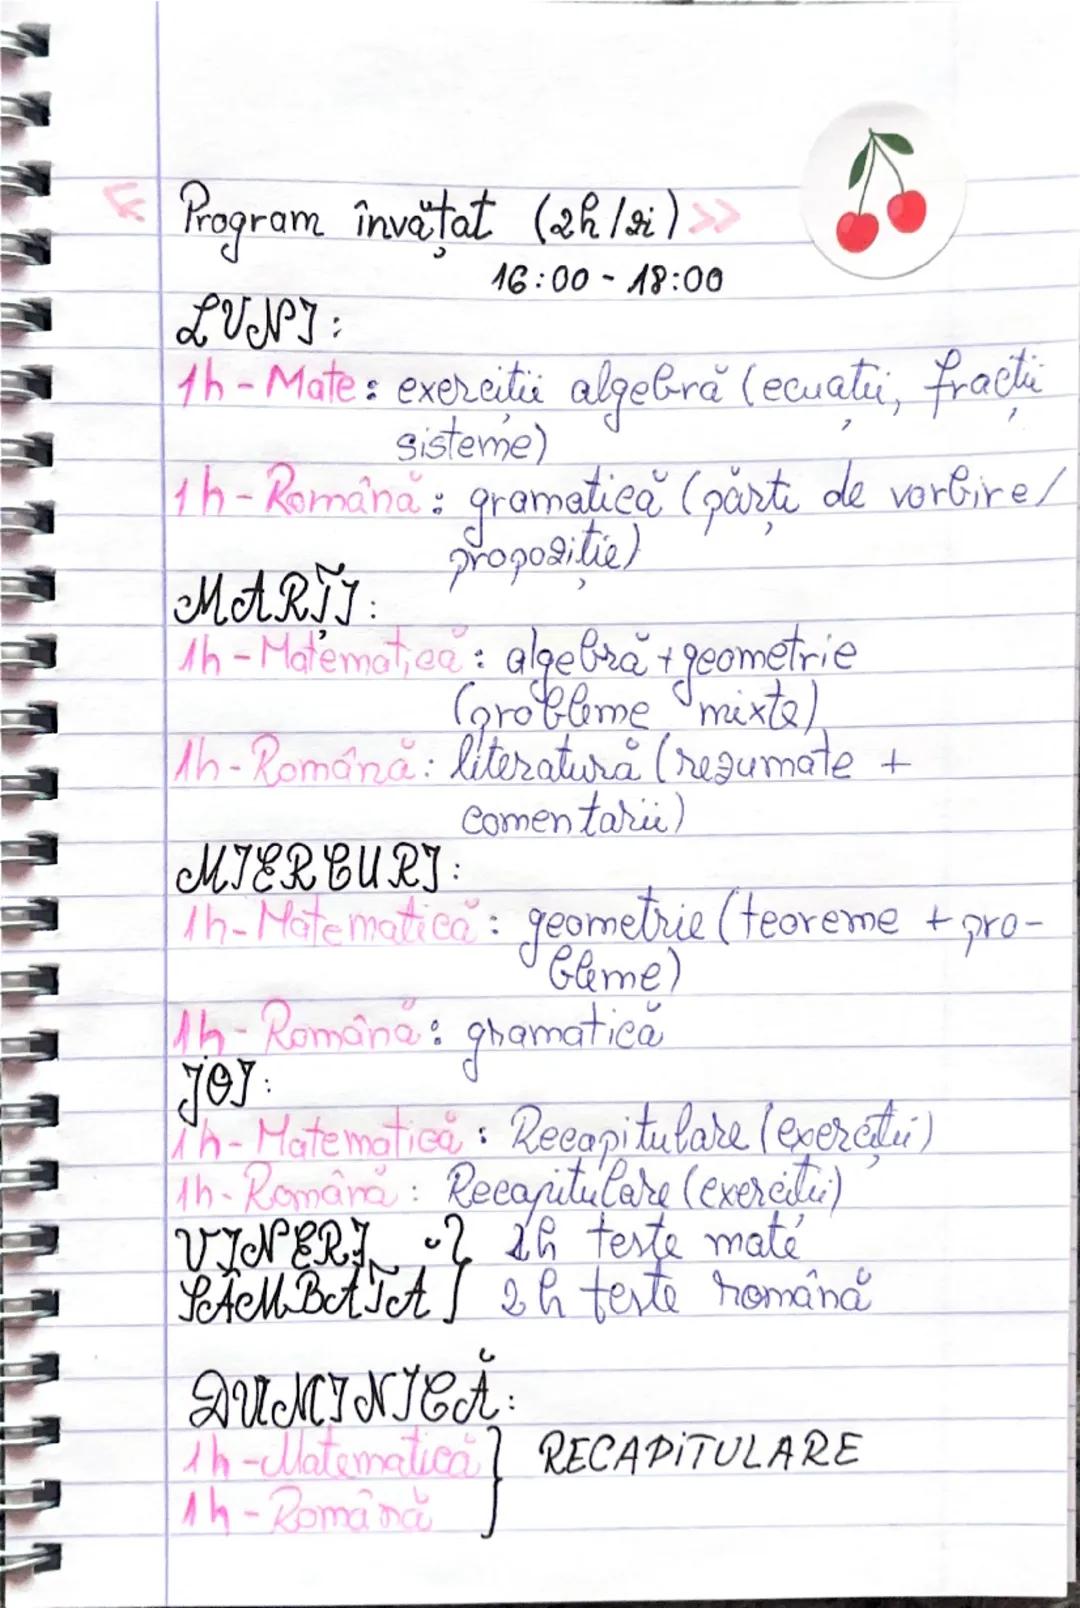 << Program învățat (2h/zi) >>
16:00 - 18:00
LUNI:
1h - Mate: exerciții algebră (ecuații, fracții
sisteme)
1h - Română: gramatică (părți de vorbire/
propoziție)
MARȚI:
1h - Matematică: algebră + geometrie
(probleme mixte)
1h - Română: literatură (rezumate +
comentarii)
MIERCURI:
1h - Matematică: geometrie (teoreme + pro-
bleme)
1h - Română: gramatică
JOI:
1h - Matematică: Recapitulare (exerciții)
1h - Română: Recapitulare (exerciții)
VINERI } 2h teste mate
SÂMBĂTĂ } 2h teste română
DUMINICĂ:
1h - Matematică } RECAPITULARE
1h - Română